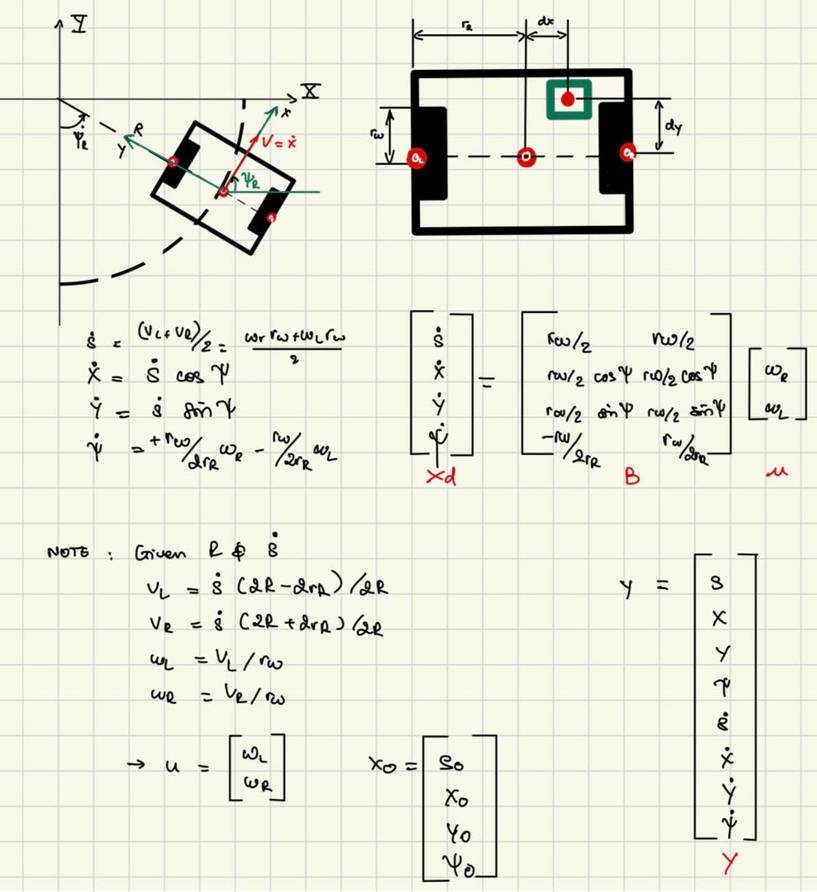 Y
X
Ψ_R
R
y
x
V = ẋ
Ψ_R
r_R
dx
r_w
dy
O_L
O
O_R
ṡ = (V_L+V_R)/2 = (ω_r r_w + ω_L r_w)/2
Ẋ = ṡ cos Ψ
Ẏ = ṡ sin Ψ
Ψ̇ = +r_w/2r_R ω_R - r_w/2r_R ω_L
[ṡ Ẋ Ẏ Ψ̇] = [r_w/2 r_w/2
r_w/2 cos Ψ r_w/2 cos Ψ
r_w/2 sin Ψ r_w/2 sin Ψ
-r_w/2r_R r_w/2r_R] [ω_R ω_L]
Xd
B
u
NOTE : Given R & ṡ
V_L = ṡ (2R-2r_R)/2R
V_R = ṡ (2R+2r_R)/2R
ω_L = V_L/r_w
ω_R = V_R/r_w
→ u = [ω_L
ω_R]
x_0 = [s_0
X_0
Y_0
Ψ_0]
y = [s
X
Y
Ψ
ṡ
Ẋ
Ẏ
Ψ̇]
Y